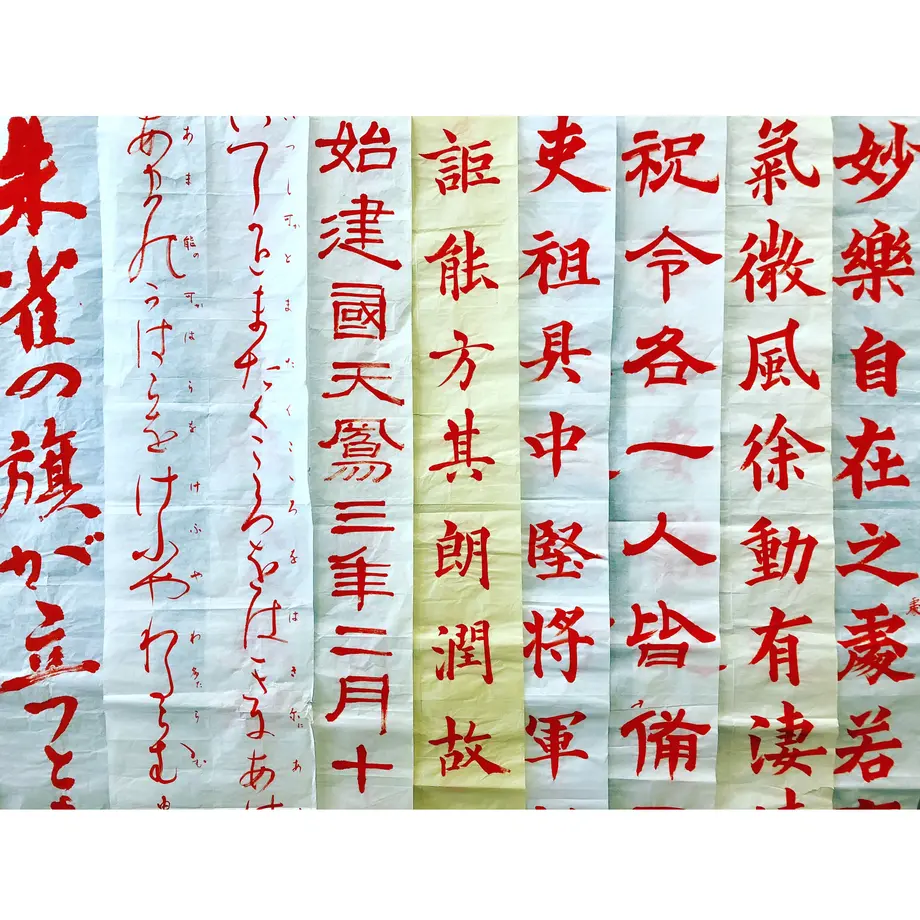 妙樂自在之處若
氣微風徐動有淒
祝令各一人皆備
吏祖具中堅將軍
詎能方其朗潤故
始建國天鳳三年二月十
いつし可とまたくこころをはき尓あ
あま能可はらをけふやわたらむ
朱雀の旗が立つと